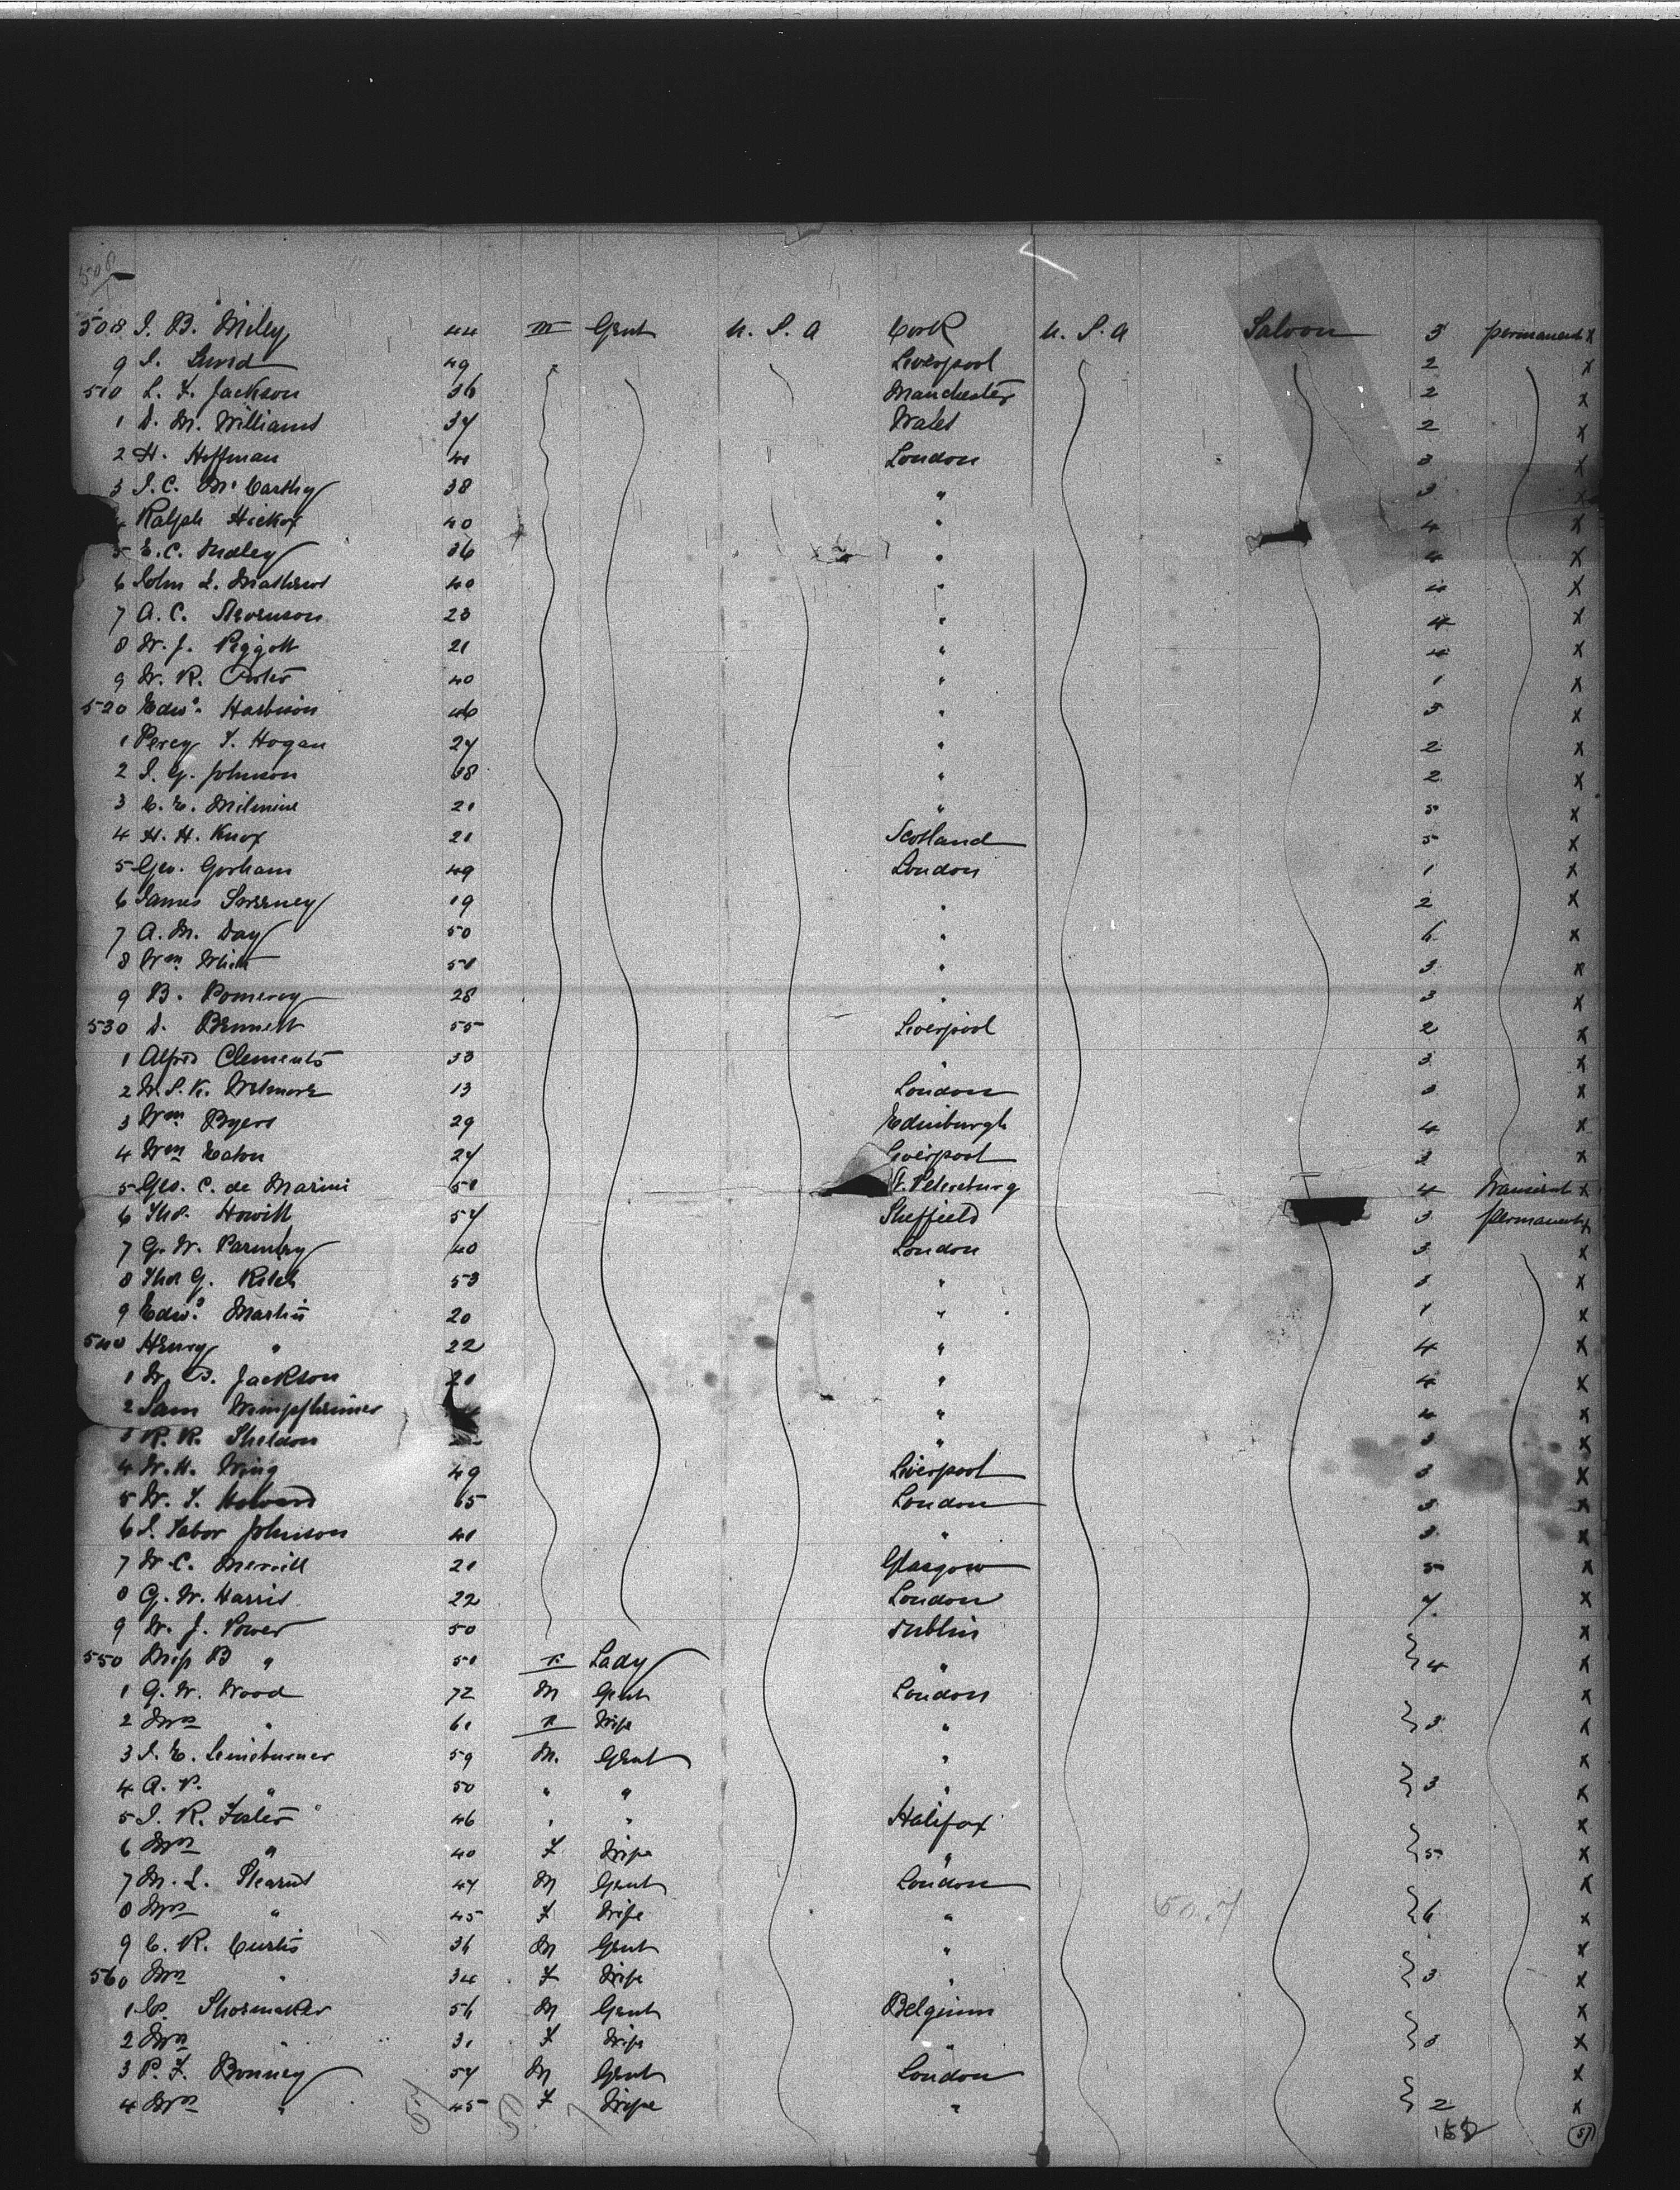 508 J. B. Miley 44 m Gent U. S. A Cork U. S. A Saloon 3 permanent X
9 J. 49 Liverpool 2 X
510 L. F. Jackson 36 Manchester 2 X
1 D. M. Williams 37 Wales 2 X
2 H. Hoffman 40 London 3 X
3 J. C. McCarthy 38 " 3 X
Ralph Hickox 40 " 4 X
5 E. C. 36 " 4 X
6 John L. Mathews 40 " 4 X
7 A. C. Stevenson 23 " 4 X
8 W. J. Piggott 21 " 4 X
9 W. R. Porter 40 " 1 X
520 Edwd. Harbison 46 " 5 X
1 Percy T. Hogan 27 " 2 X
2 J. G. Johnson 38 " 2 X
3 C. E. Milmine 21 " 5 X
4 H. H. Knox 21 Scotland 5 X
5 Geo. Gorham 49 London 1 X
6 James Sweeney 19 " 2 X
7 A. M. Day 50 " 6 X
8 Wm White 51 " 3 X
9 B. Pomeroy 28 " 3 X
530 D. Bennett 55 Liverpool 2 X
1 Alfred Clements 33 " 3 X
2 W. S. K. Wetmore 13 London 3 X
3 Wm Byers 29 Edinburgh 4 X
4 Wm Eaton 27 Liverpool 3 X
5 Geo. C. de Marini 51 St. Petersburg 4 Transient X
6 Thos. Howitt 57 Sheffield 3 permanent X
7 G. W. Parmley 40 London 3 X
8 Thos G. 53 " 3 X
9 Edwd. Martin 20 " 1 X
540 Henry " 22 " 4 X
1 W. D. Jackson 21 " 4 X
2 Sam Wimpfheimer " 4 X
3 R. R. Sheldon " 3 X
4 W. H. Wing 49 Liverpool 3 X
5 W. T. Howard 65 London 3 X
6 J. Tabor Johnson 41 " 3 X
7 W. C. Merrill 21 Glasgow 5 X
8 G. W. Harris 22 London 7 X
9 W. J. Power 50 Dublin X
550 Miss B " 51 F Lady " } 4 X
1 G. W. Wood 72 M Gent London X
2 Mrs " 61 F Wife " } 3 X
3 J. E. Leineburner 59 M. Gent " X
4 A. P. " 50 " " " } 3 X
5 J. R. Foster 46 " " Halifax X
6 Mrs " 40 F Wife " } 5 X
7 M. L. Stearns 47 M Gent London X
8 Mrs " 45 F Wife " } 6 X
9 C. R. Curtis 36 M Gent " X
560 Mrs " 34 F Wife " } 3 X
1 C. Shoemaker 56 M Gent Belgium X
2 Mrs " 31 F Wife " } 3 X
3 P. F. Bonney 57 M Gent London X
4 Mrs " 45 F Wife " } 2 X